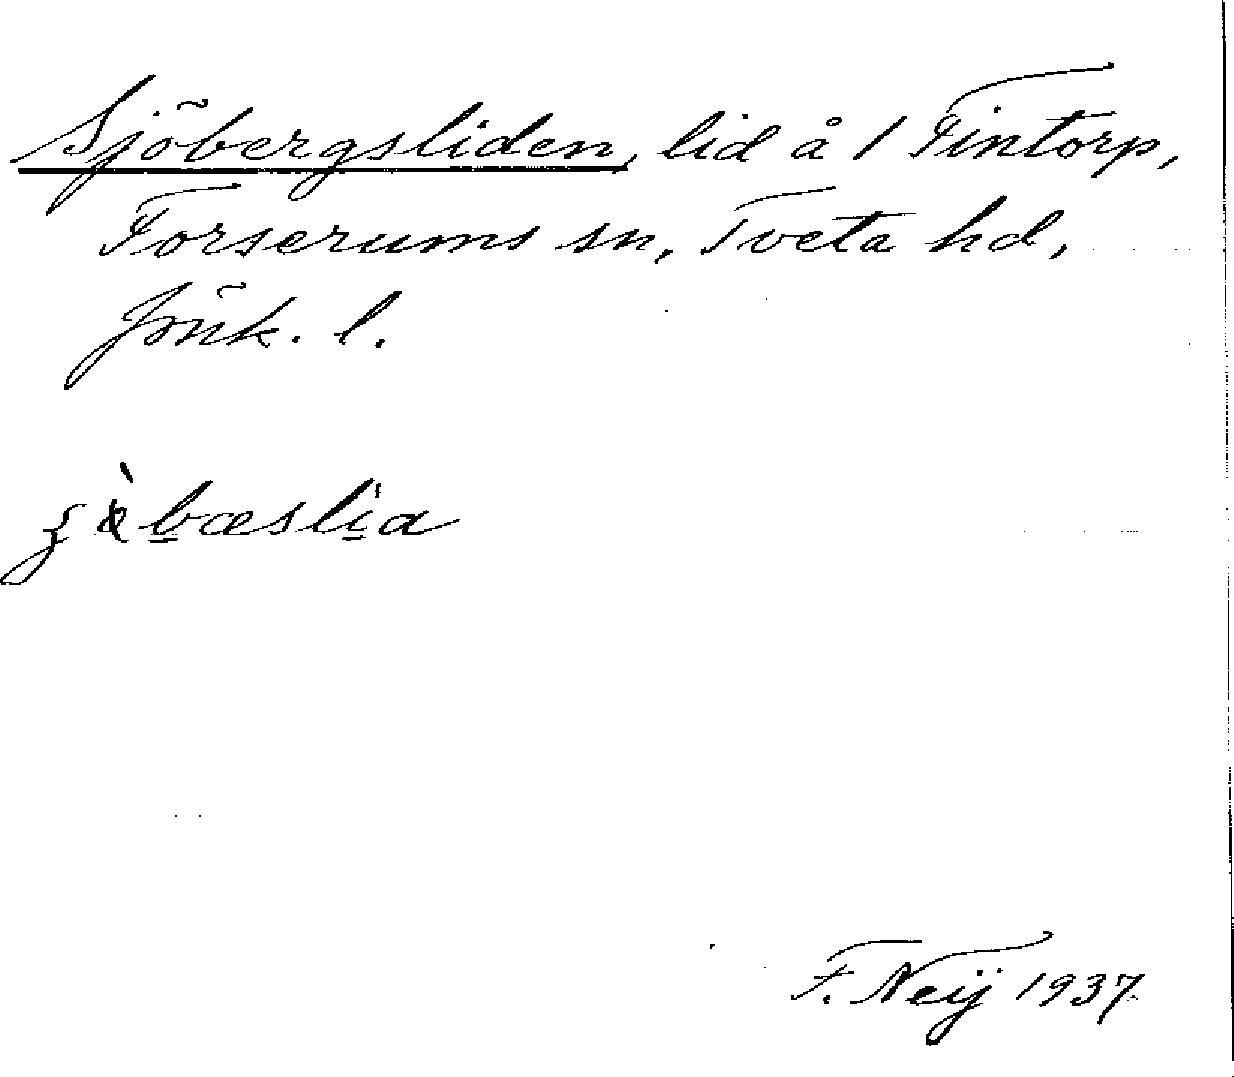 Sjöbergsliden, lid å 1 Fintorp,
Forserums sn, Tveta hd,
Jönk. l.
F. Neij 1937.